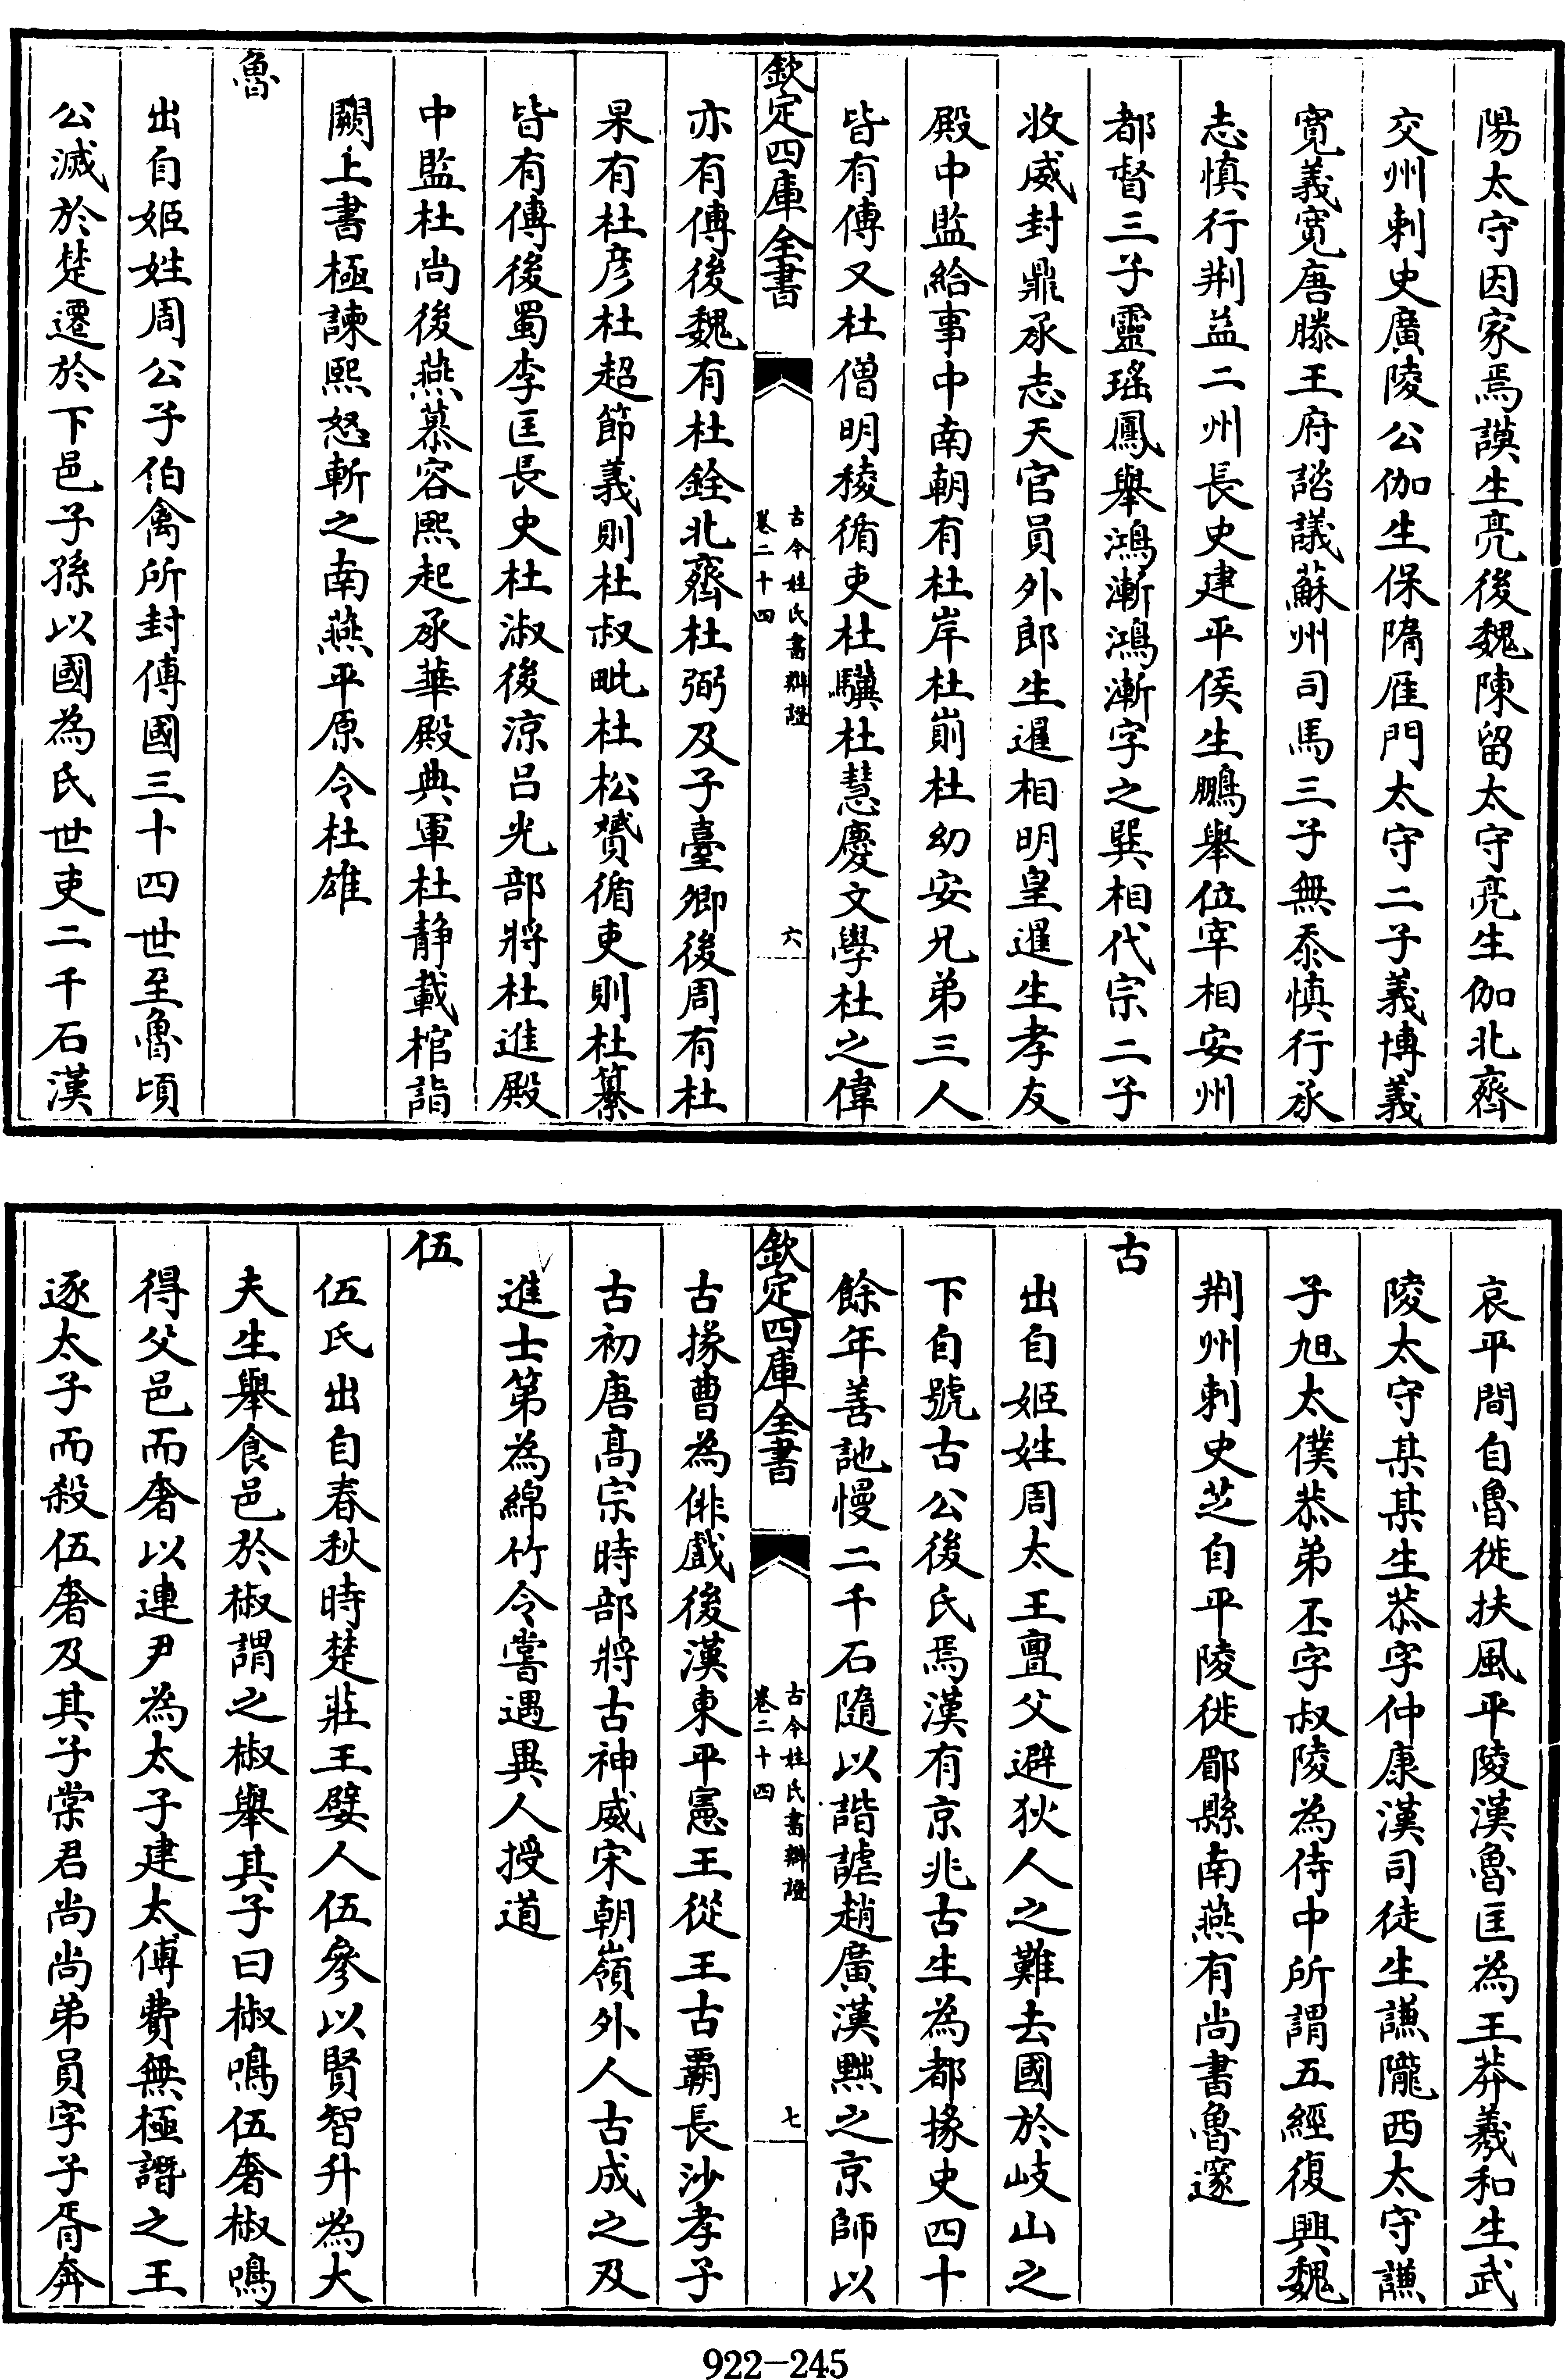 陽太守因家焉謨生亮後魏陳留太守亮生伽北齊
交州刺史廣陵公伽生保隋雁門太守二子義博義
寬義寬唐滕王府諮議蘇州司馬三子無忝慎行承
志慎行荆益二州長史建平侯生鵬舉位宰相安州
都督三子靈瑤鳳舉鴻漸鴻漸字之巽相代宗二子
收威封鼎承志天官員外郎生暹相明皇暹生孝友
殿中監給事中南朝有杜岸杜崱杜幼安兄弟三人
皆有傳又杜僧明稜循吏杜驥杜慧慶文學杜之偉
欽定四庫全書
古今姓氏書辯證
卷二十四
六
亦有傳後魏有杜銓北齊杜弼及子臺卿後周有杜
杲有杜彦杜超節義則杜叔毗杜松贇循吏則杜纂
皆有傳後蜀李匡長史杜淑後涼吕光部將杜進殿
中監杜尚後燕慕容熙起承華殿典軍杜静載棺詣
闕上書極諫熙怒斬之南燕平原令杜雄
魯
出自姬姓周公子伯禽所封傳國三十四世至魯頃
公滅於楚遷於下邑子孫以國為氏世吏二千石漢
哀平間自魯徙扶風平陵漢魯匡為王莽羲和生武
陵太守某某生恭字仲康漢司徒生謙隴西太守謙
子旭太僕恭弟丕字叔陵為侍中所謂五經復興魏
荆州刺史芝自平陵徙郿縣南燕有尚書魯邃
古
出自姬姓周太王亶父避狄人之難去國於岐山之
下自號古公後氏焉漢有京兆古生為都掾史四十
餘年善訑慢二千石隨以諧謔趙廣漢黜之京師以
欽定四庫全書
古今姓氏書辯證
卷二十四
七
古掾曹為俳戲後漢東平憲王從王古霸長沙孝子
古初唐高宗時部將古神威宋朝嶺外人古成之及
進士第為綿竹令嘗遇異人授道
伍
伍氏出自春秋時楚莊王嬖人伍參以賢智升為大
夫生舉食邑於椒謂之椒舉其子曰椒鳴伍奢椒鳴
得父邑而奢以連尹為太子建太傅費無極譖之王
逐太子而殺伍奢及其子棠君尚尚弟員字子胥奔
922-245